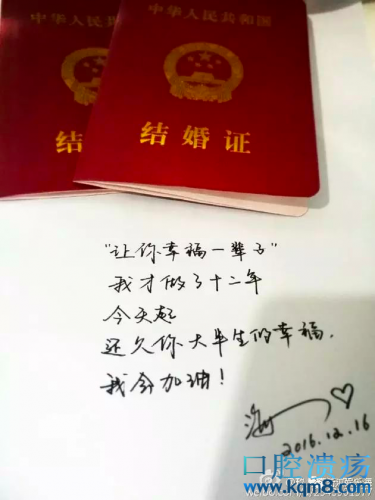 中华人民共和国
中华人民共和国
结婚证
结婚证
"让你幸福一辈子"
我才做了十二年
今天起
还欠你大半生的幸福.
我会加油!
2016.12.16
口腔溃疡
www.kqm8.com